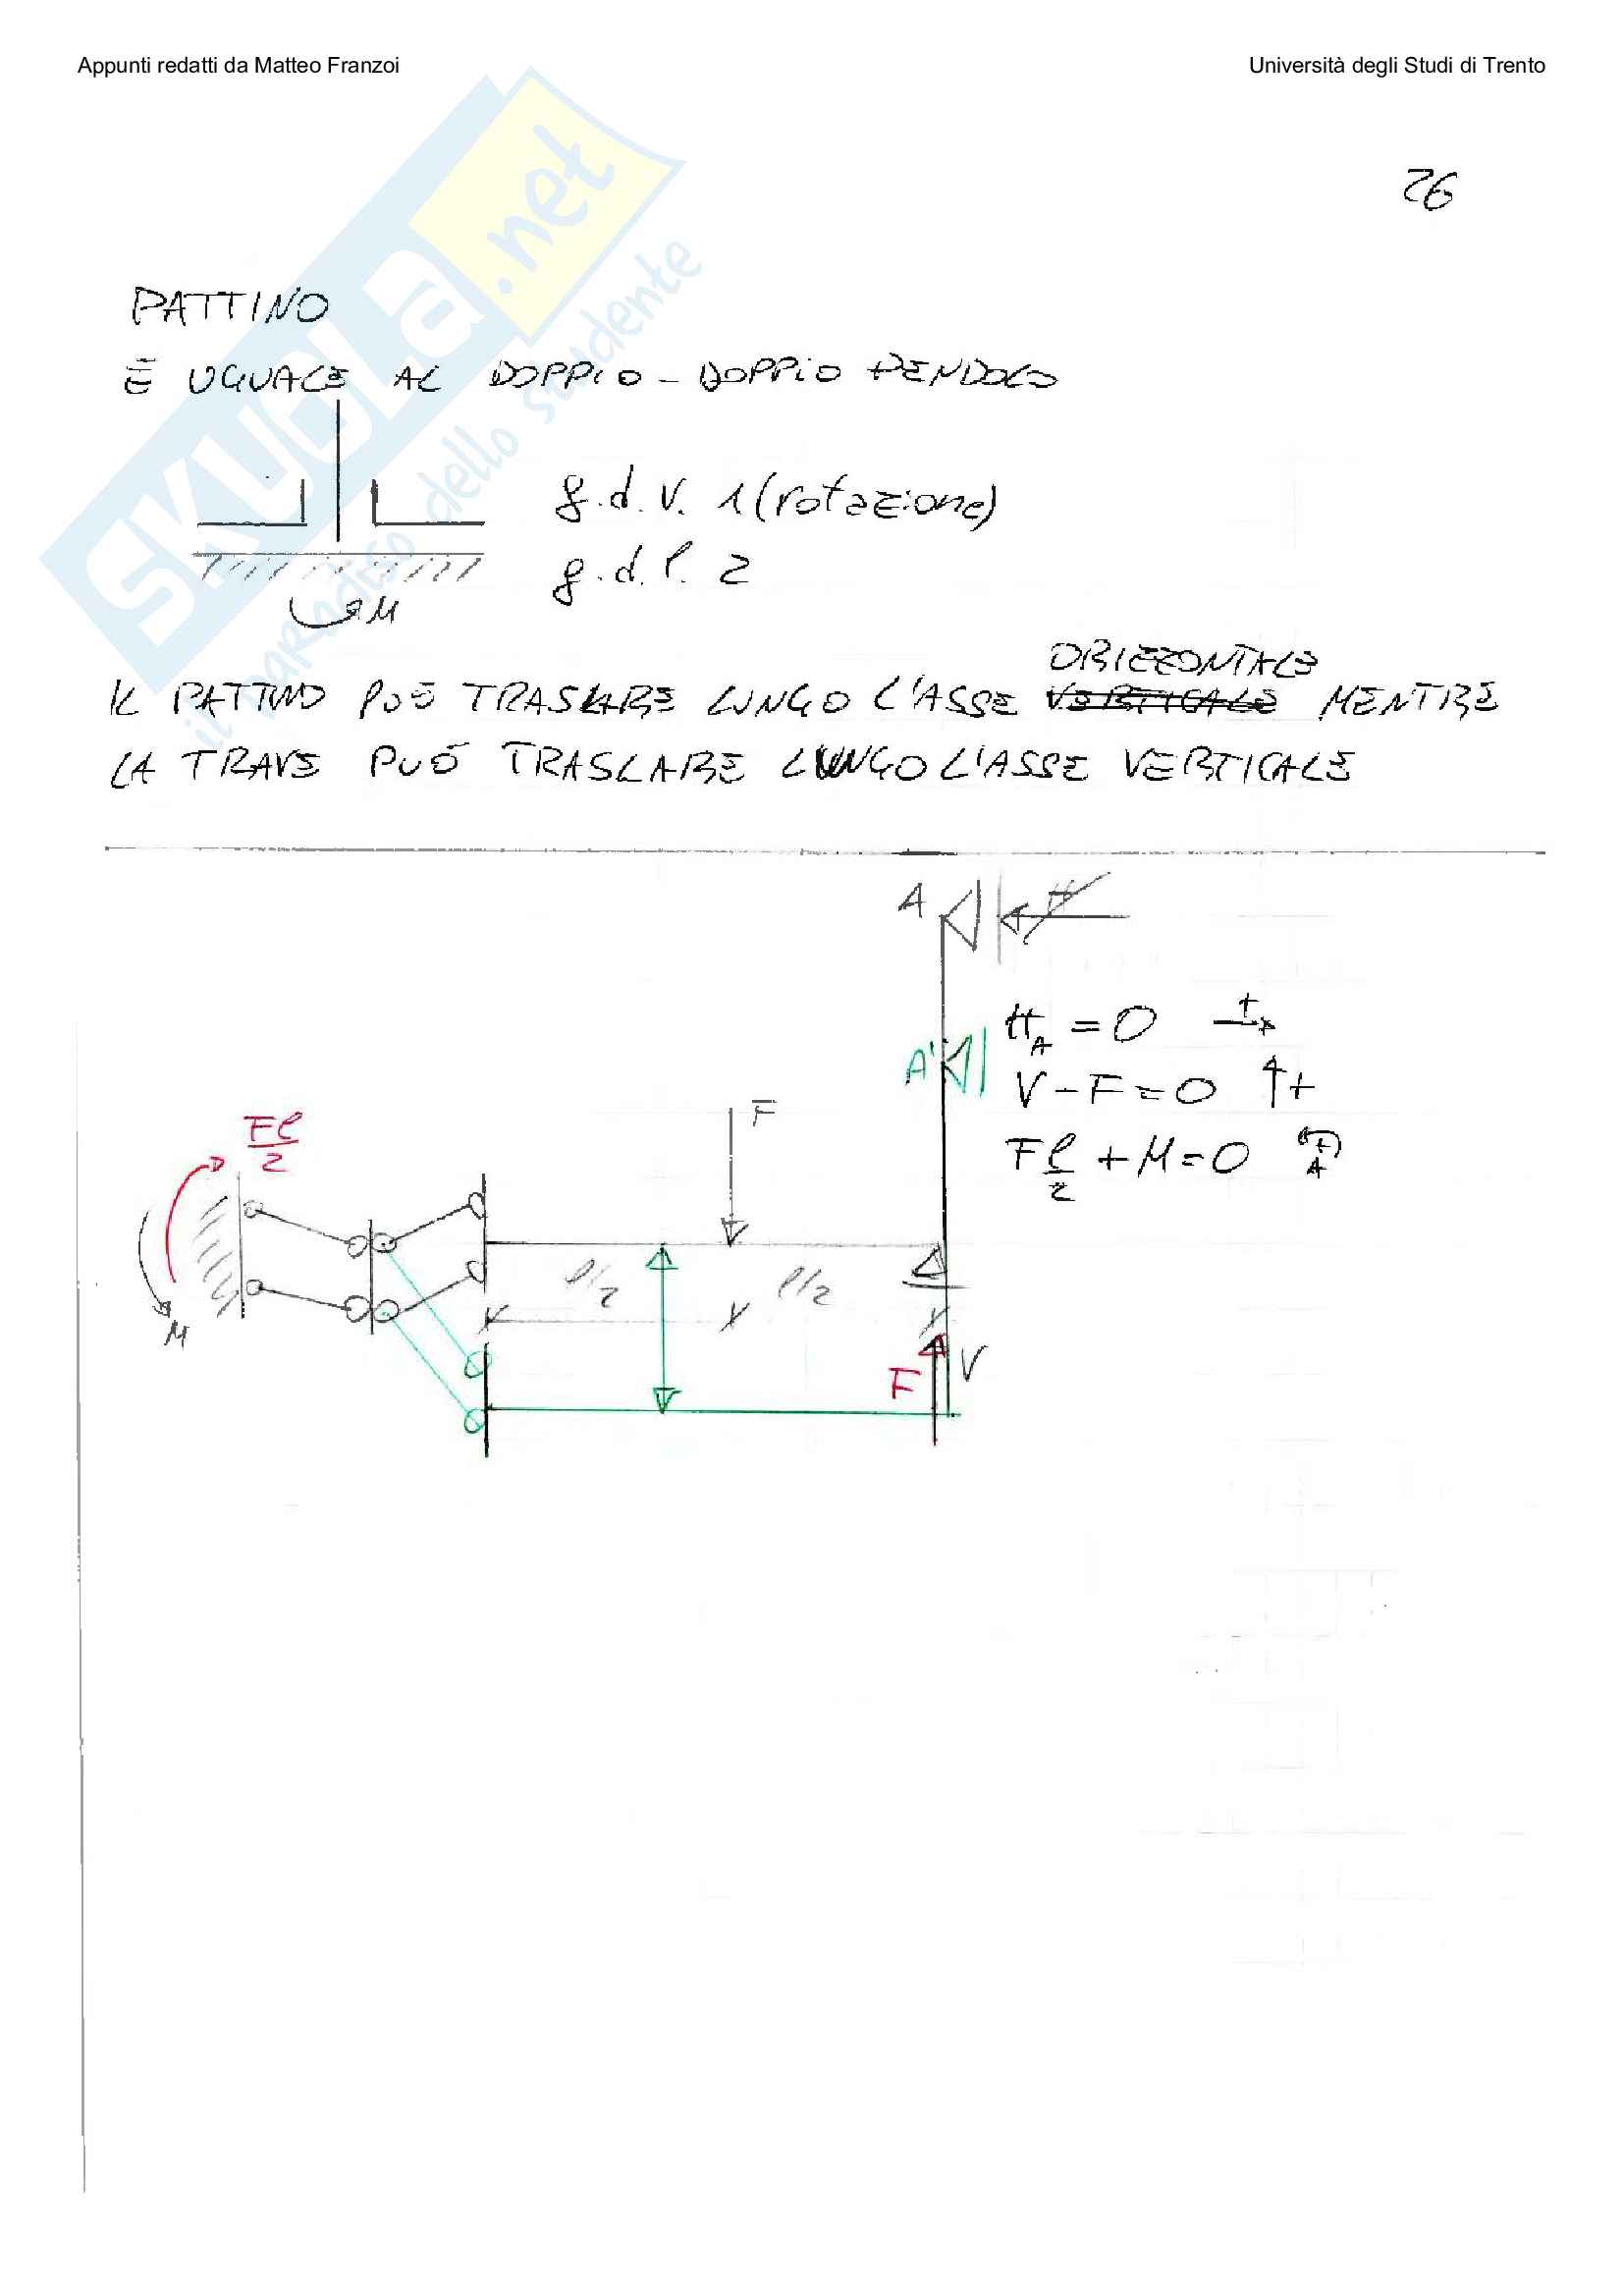 Appunti redatti da Matteo Franzoi
Università degli Studi di Trento
26
PATTINO
È UGUALE AL DOPPIO-DOPPIO PENDOLO
g.d.v. 1 (rotazione)
g.d.l. 2
M
ORIZZONTALE
IL PATTINO PUÒ TRASLARE LUNGO L'ASSE VERTICALE MENTRE
LA TRAVE PUÒ TRASLARE LUNGO L'ASSE VERTICALE
A
H
H_A = 0 +
A'
V - F = 0 +
F
Fl/2
Fl/2 + M = 0 + A
l/2
l/2
M
F
V
SKUOLA.net
il paradiso dello studente